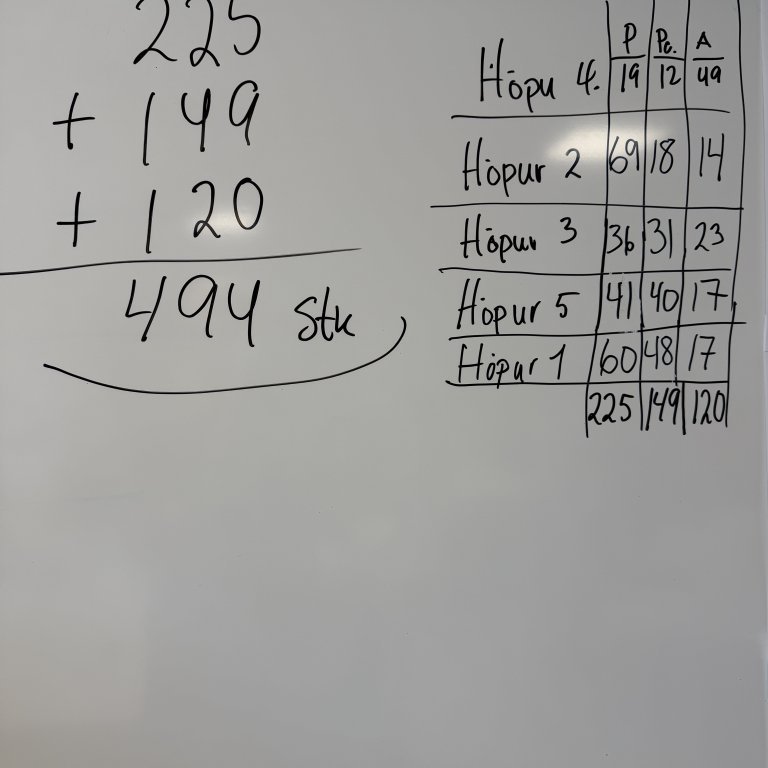 225
+ 149
+ 120
494 stk
P Pa. A
Hópu 4. 19 12 49
Hópur 2 69 18 14
Hópur 3 36 31 23
Hópur 5 41 40 17
Hópur 1 60 48 17
225 149 120